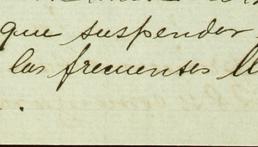 que suspender
las frecuenses ll